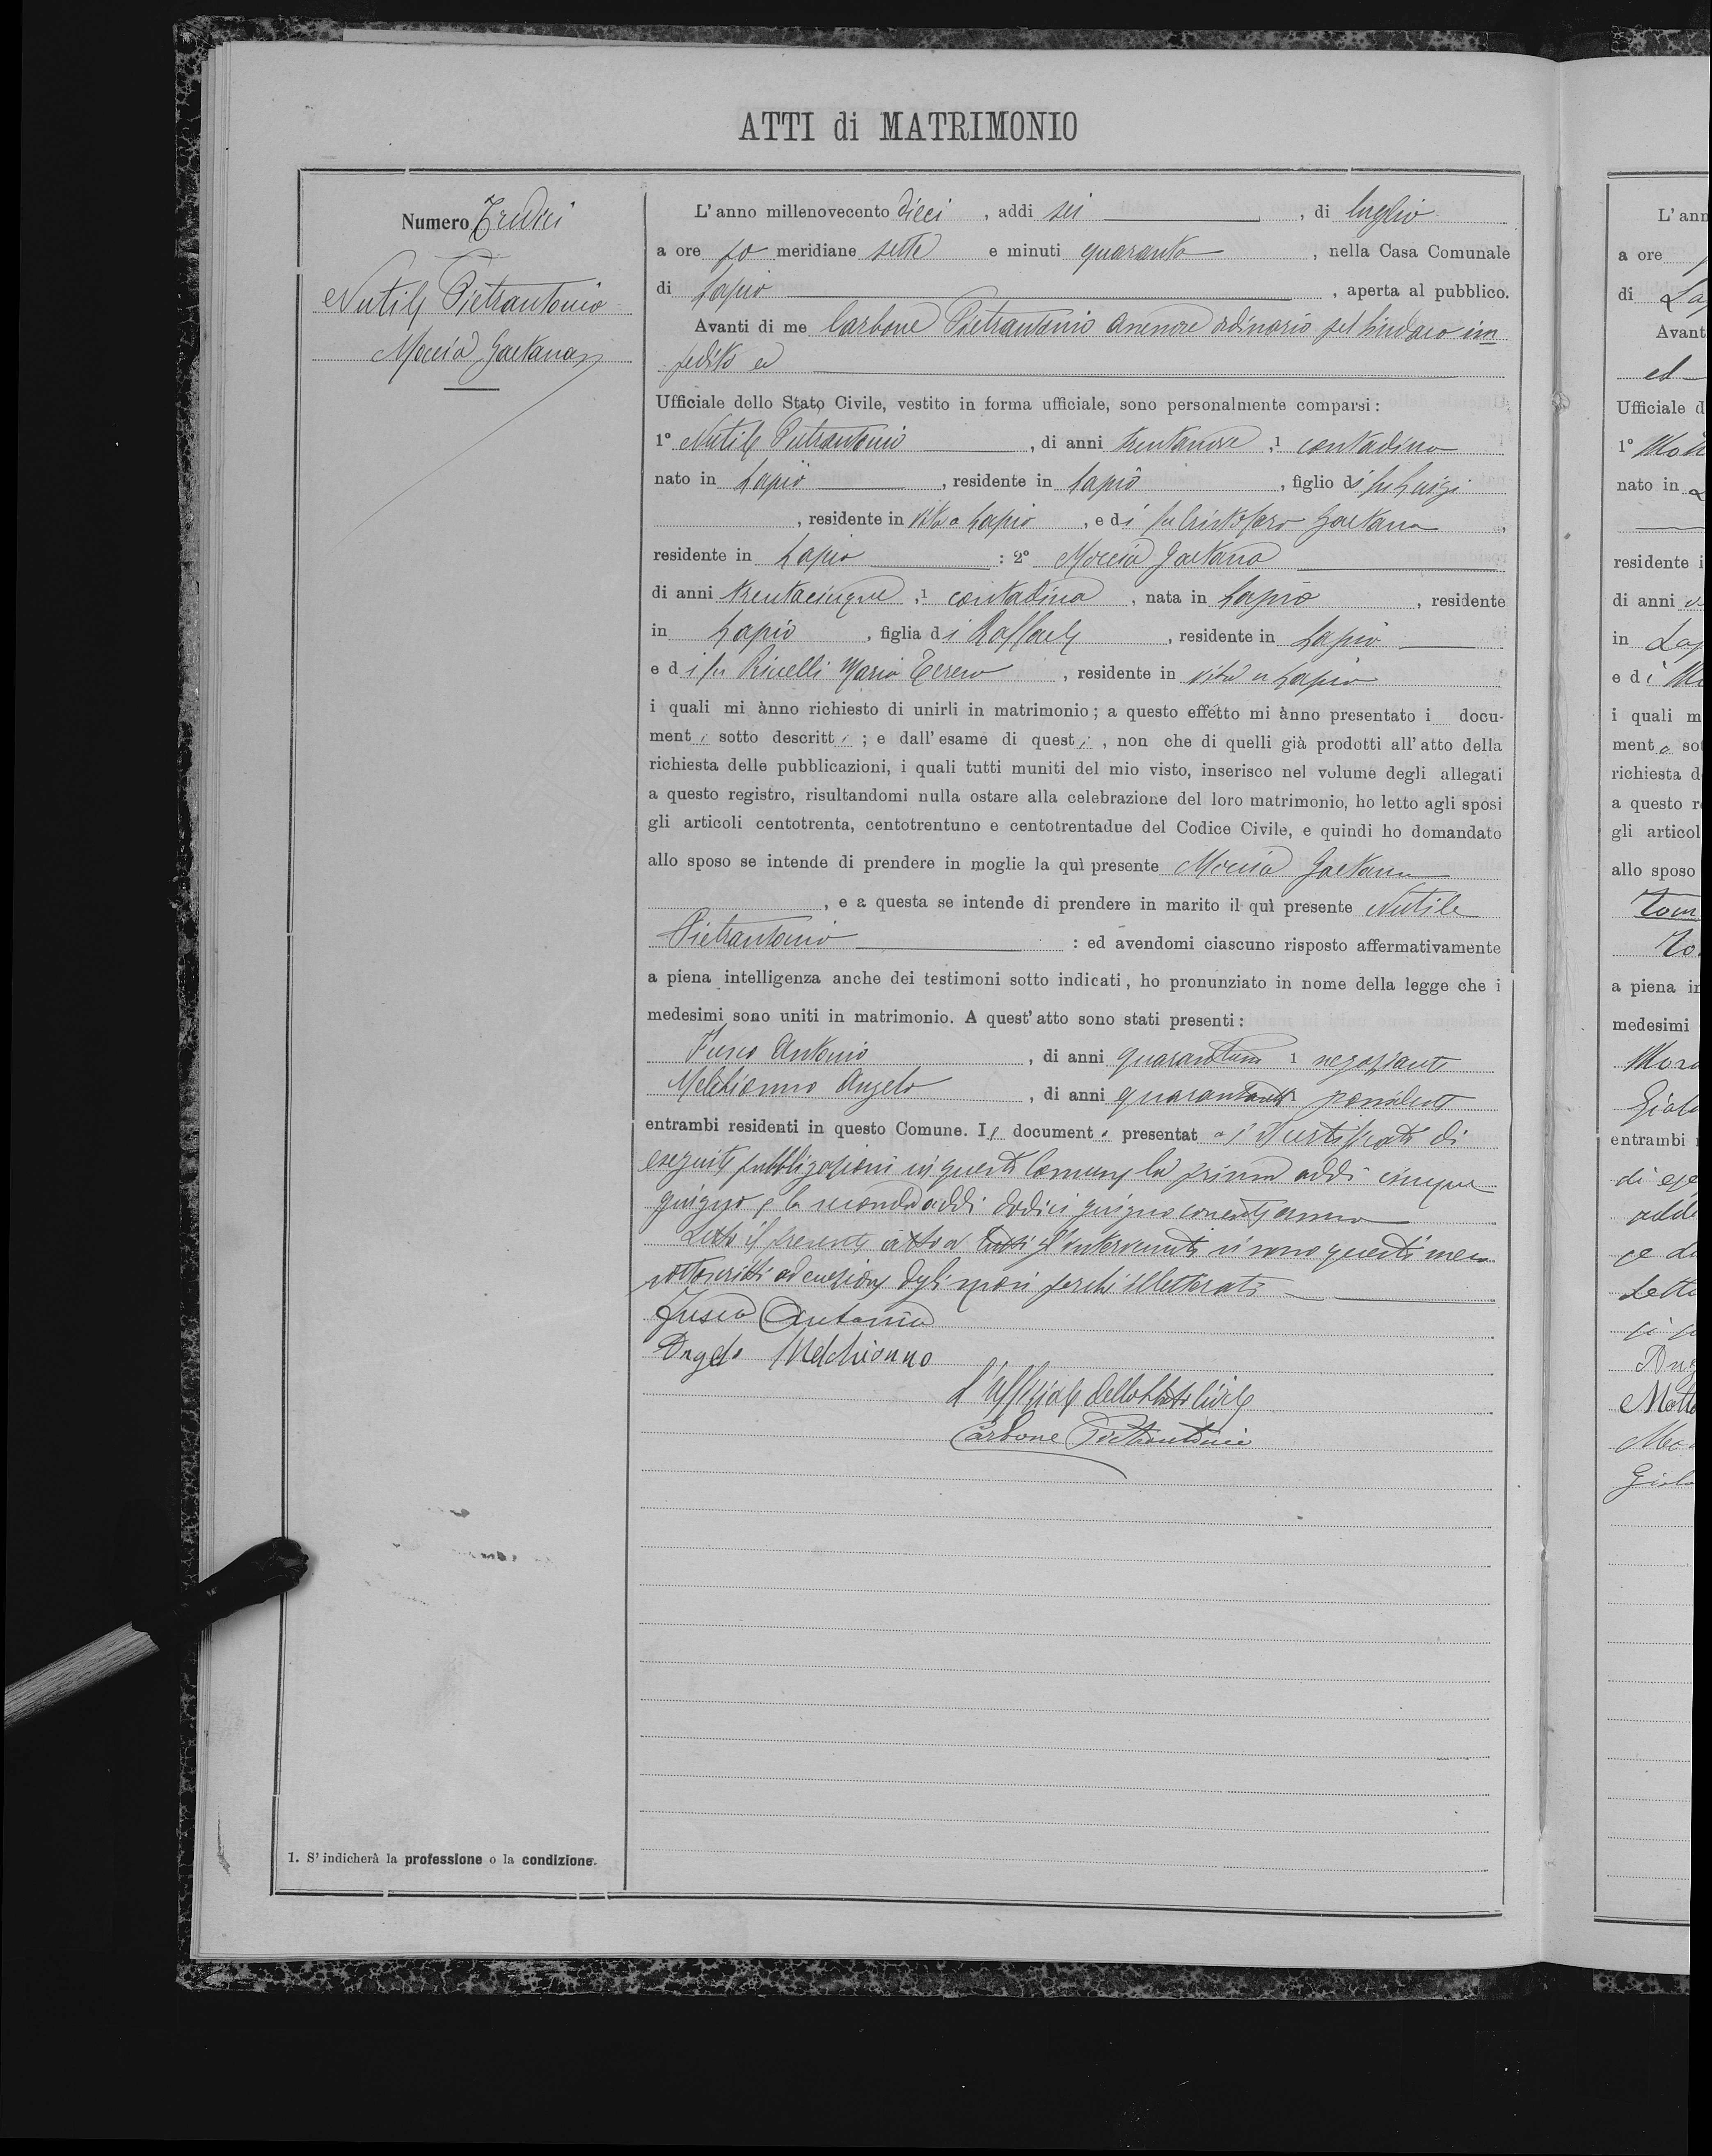 ATTI di MATRIMONIO
Numero Tredici
Nutile Pietrantonio
Moccia Gaetana
L'anno millenovecento dieci, addi sei, di luglio
a ore po meridiane sette e minuti quaranta, nella Casa Comunale
di Lapio, aperta al pubblico.
Avanti di me Carbone Pietrantonio Assessore ordinario pel Sindaco im
pedito ed
Ufficiale dello Stato Civile, vestito in forma ufficiale, sono personalmente comparsi:
1° Nutile Pietrantonio, di anni trentanove, 1 contadino
nato in Lapio, residente in Lapio, figlio di fu Luigi
, residente in vita a Lapio, e di fu Cristofaro Gaetana,
residente in Lapio: 2° Moccia Gaetana
di anni trentacinque, 1 contadina, nata in Lapio, residente
in Lapio, figlia di Raffaele, residente in Lapio
e di fu Ricelli Maria Teresa, residente in vita in Lapio
i quali mi ànno richiesto di unirli in matrimonio; a questo effetto mi ànno presentato i docu-
menti sotto descritti; e dall'esame di questi, non che di quelli già prodotti all'atto della
richiesta delle pubblicazioni, i quali tutti muniti del mio visto, inserisco nel volume degli allegati
a questo registro, risultandomi nulla ostare alla celebrazione del loro matrimonio, ho letto agli sposi
gli articoli centotrenta, centotrentuno e centotrentadue del Codice Civile, e quindi ho domandato
allo sposo se intende di prendere in moglie la quì presente Moccia Gaetana
, e a questa se intende di prendere in marito il quì presente Nutile
Pietrantonio: ed avendomi ciascuno risposto affermativamente
a piena intelligenza anche dei testimoni sotto indicati, ho pronunziato in nome della legge che i
medesimi sono uniti in matrimonio. A quest'atto sono stati presenti:
Fusco Antonio, di anni quarantuno 1 negoziante
Melchionno Angelo, di anni possidente
entrambi residenti in questo Comune. Il documento presentato è il certificato di
eseguite pubblicazioni in questo Comune la prima addì cinque
giugno, e la seconda addì dodici giugno corrente anno
Letto il presente atto a tutti gl'intervenuti si sono questi meco
sottoscritti ad eccezione degli sposi perchè illetterati
Fusco Antonio
Angelo Melchionno
L'Uffiziale dello Stato Civile
Carbone Pietrantonio
1. S'indicherà la professione o la condizione.
L'ann
a ore
di La
Avant
ed
Ufficiale d
1°
nato in
residente i
di anni
in Lap
e di
i quali m
ment sot
richiesta d
a questo r
gli articol
allo sposo
a piena in
medesimi
entrambi
di ese
Ang